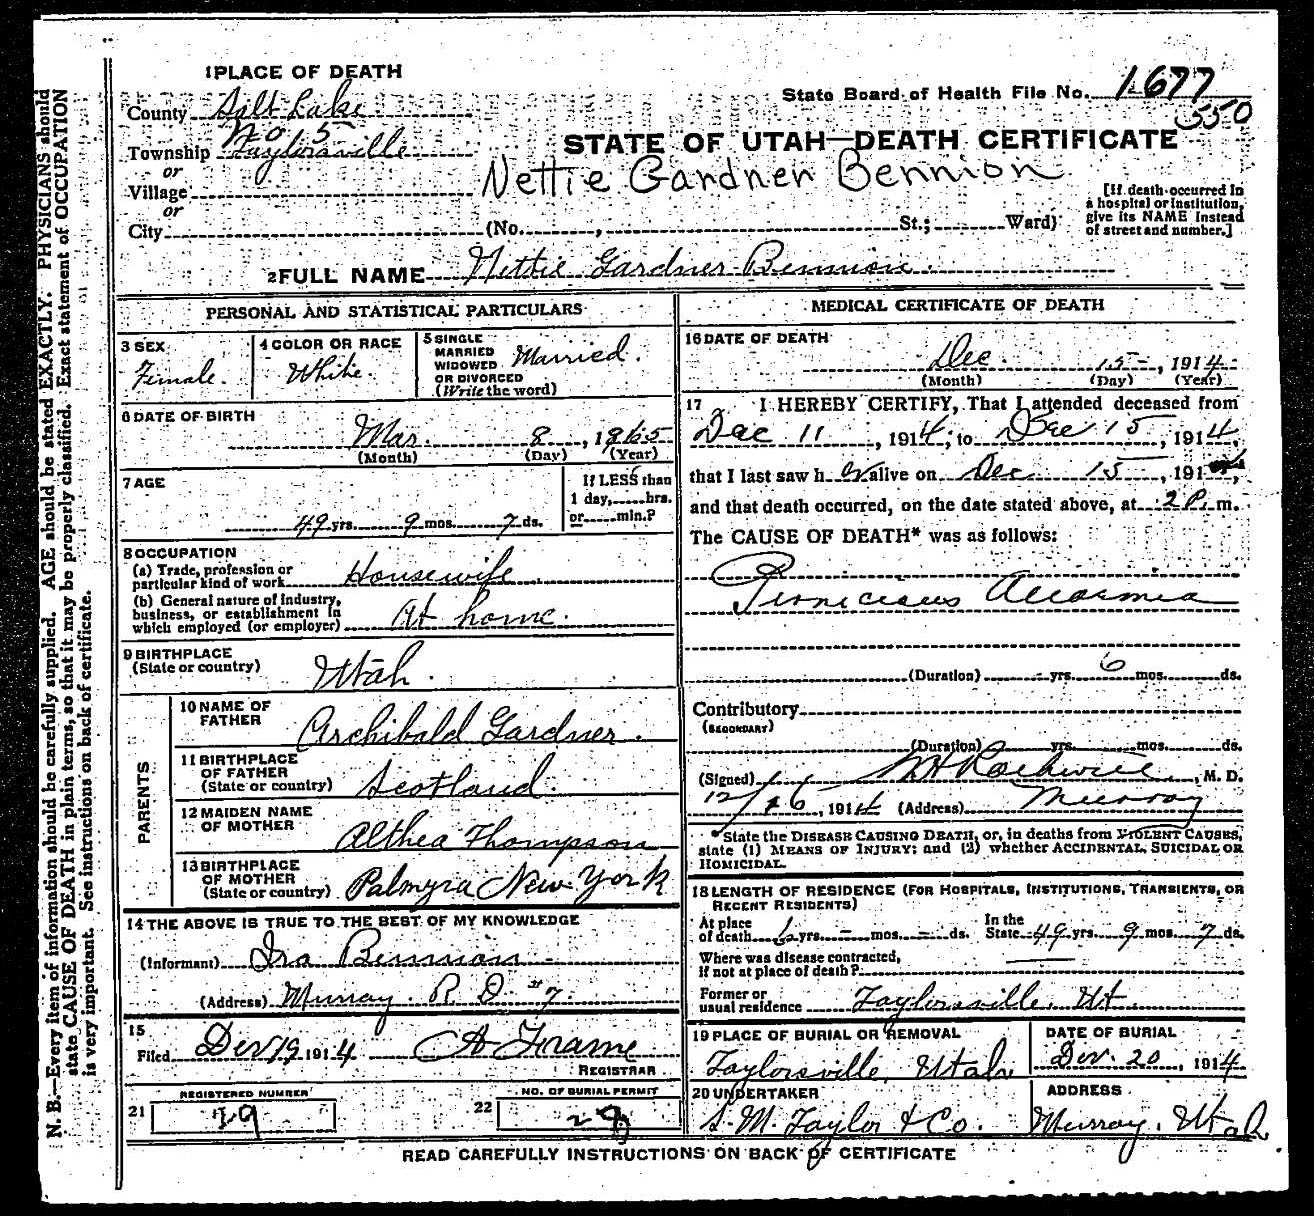 1 PLACE OF DEATH
County Salt Lake
No. 5
Township Taylorsville
or
Village
or
City (No. , St.; Ward)
State Board of Health File No. 1677
550
STATE OF UTAH—DEATH CERTIFICATE
Nettie Gardner Bennion
[If death occurred in
a hospital or institution,
give its NAME instead
of street and number.]
2 FULL NAME Nettie Gardner Bennion.
PERSONAL AND STATISTICAL PARTICULARS
3 SEX
Female.
4 COLOR OR RACE
White.
5 SINGLE
MARRIED
WIDOWED
OR DIVORCED
(Write the word)
Married.
6 DATE OF BIRTH
Mar. 8, 1865
(Month) (Day) (Year)
7 AGE
49 yrs. 9 mos. 7 ds.
If LESS than
1 day, hrs.
or min.?
8 OCCUPATION
(a) Trade, profession or
particular kind of work Housewife
(b) General nature of industry,
business, or establishment in
which employed (or employer) At home.
9 BIRTHPLACE
(State or country) Utah.
PARENTS
10 NAME OF
FATHER Archibald Gardner.
11 BIRTHPLACE
OF FATHER
(State or country) Scotland.
12 MAIDEN NAME
OF MOTHER Althea Thompson
13 BIRTHPLACE
OF MOTHER
(State or country) Palmyra New York
14 THE ABOVE IS TRUE TO THE BEST OF MY KNOWLEDGE
(Informant) Ira Bennion
(Address) Murray. R. D. #7.
15
Filed Dec 19 1914 A Frame
REGISTRAR
REGISTERED NUMBER
21 29
NO. OF BURIAL PERMIT
22 29
MEDICAL CERTIFICATE OF DEATH
16 DATE OF DEATH
Dec. 15, 1914
(Month) (Day) (Year)
17 I HEREBY CERTIFY, That I attended deceased from
Dec 11, 1914, to Dec 15, 1914,
that I last saw her alive on Dec 15, 1914,
and that death occurred, on the date stated above, at 2 P. m.
The CAUSE OF DEATH* was as follows:
Pernicious Anaemia
(Duration) yrs. 6 mos. ds.
Contributory
(SECONDARY)
(Duration) yrs. mos. ds.
(Signed) Rockwell, M. D.
12/16, 1914 (Address) Murray
*State the DISEASE CAUSING DEATH, or, in deaths from VIOLENT CAUSES,
state (1) MEANS OF INJURY; and (2) whether ACCIDENTAL, SUICIDAL OR
HOMICIDAL.
18 LENGTH OF RESIDENCE (FOR HOSPITALS, INSTITUTIONS, TRANSIENTS, OR
RECENT RESIDENTS)
At place
of death yrs. - mos. - ds.
In the
State 49 yrs. 9 mos. 7 ds.
Where was disease contracted,
if not at place of death?
Former or
usual residence Taylorsville. Ut.
19 PLACE OF BURIAL OR REMOVAL
Taylorsville, Utah
DATE OF BURIAL
Dec. 20, 1914
20 UNDERTAKER
S. M. Taylor & Co.
ADDRESS
Murray. Utah
READ CAREFULLY INSTRUCTIONS ON BACK OF CERTIFICATE
N. B.—Every item of information should be carefully supplied. AGE should be stated EXACTLY. PHYSICIANS should
state CAUSE OF DEATH in plain terms, so that it may be properly classified. Exact statement of OCCUPATION
is very important. See instructions on back of certificate.